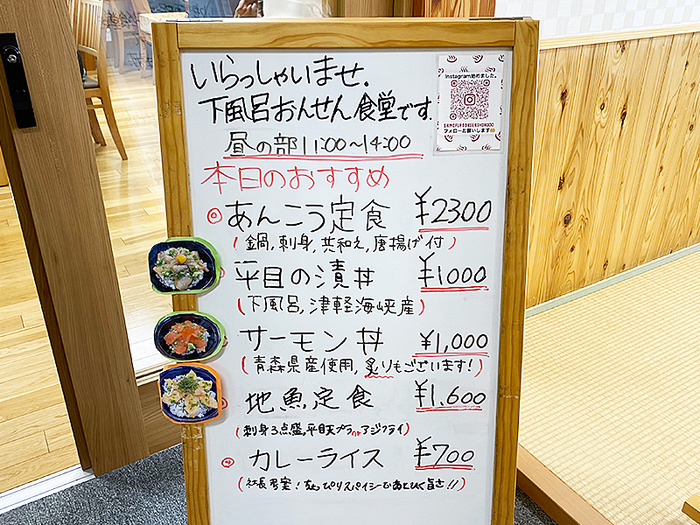 いらっしゃいませ.
下風呂おんせん食堂です.
Instagram始めました。
フォローお願いします
昼の部11:00〜14:00
本日のおすすめ
◎あんこう定食 ¥2300
(鍋,刺身,共和え,唐揚げ付)
平目の漬丼 ¥1000
(下風呂,津軽海峡産)
サーモン丼 ¥1,000
(青森県産使用,炙りもございます!)
地魚定食 ¥1.600
(刺身3点盛,平目天プラorアジフライ)
カレーライス ¥700
(社長考案! ピリスパイシーであとひく旨さ!!)